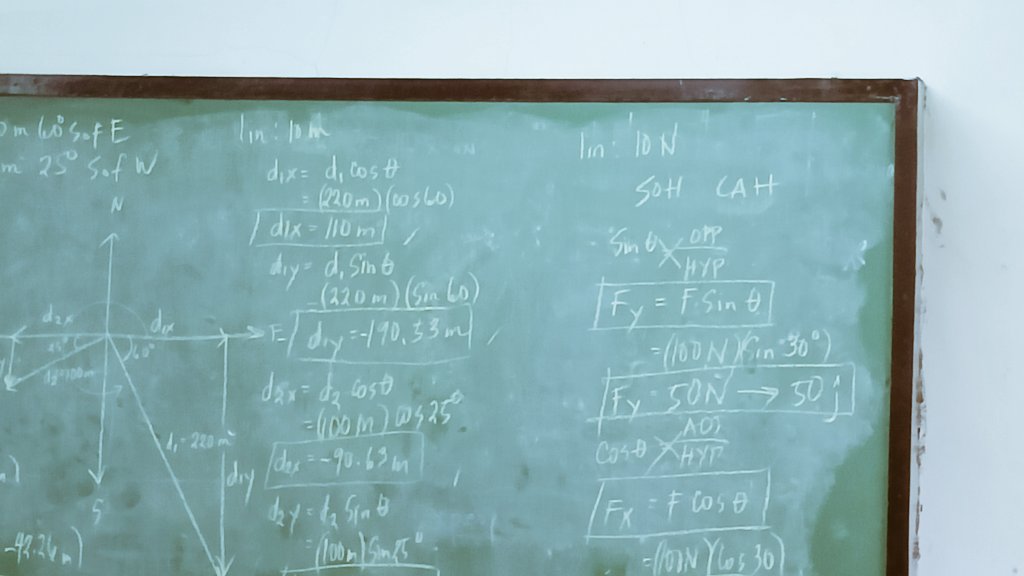 0m 60° S of E
m 25° S of W
N
d2x
d1x
E
60°
d1 = 220m
d1y
S
-42.26m)
1in: 10m
d1x = d1 cos θ
= (220m)(cos 60)
d1x = 110m
d1y = d1 Sin θ
-(220m)(Sin 60)
d1y = -190.33m
d2x = d2 cos θ
= (100m) cos 25°
d2x = -90.63m
d2y = d2 Sin θ
= (100m) Sin 25°
1in: 10N
SOH CAH
Sin θ OPP
HYP
Fy = F Sin θ
= (100N)(Sin 30°)
Fy = 50N → 50j
Cos θ ADJ
HYP
Fx = F Cos θ
= (100N)(Cos 30)